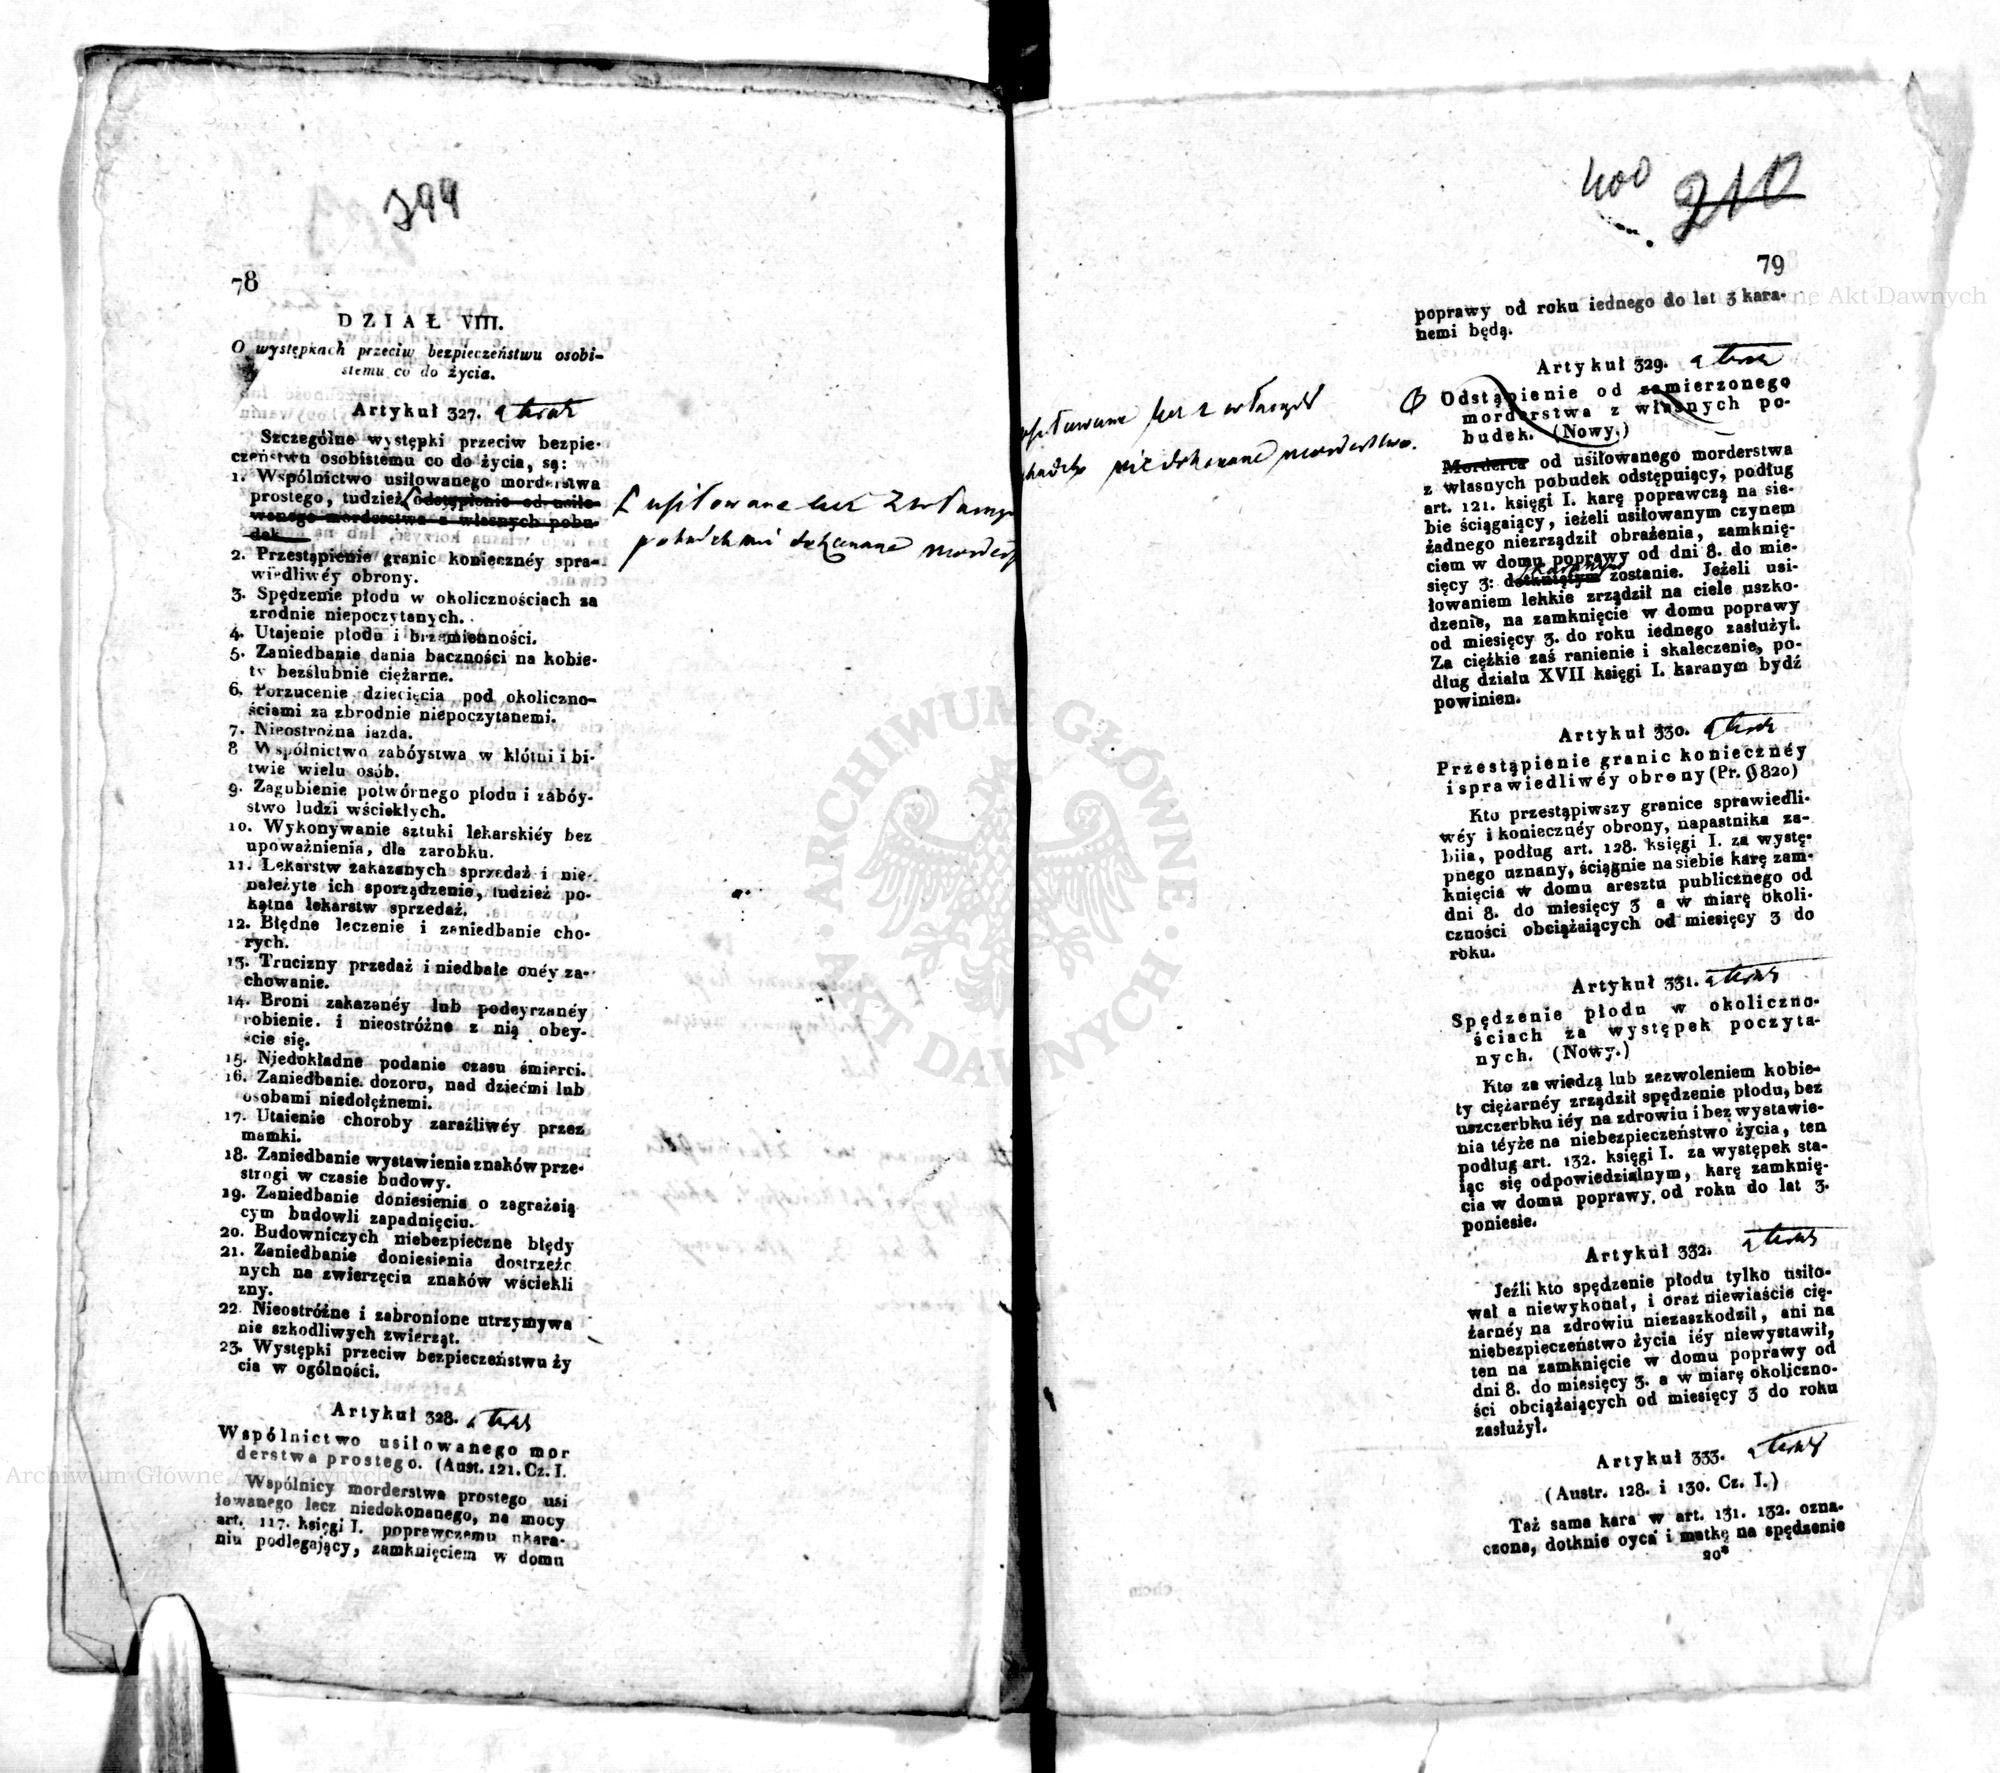 399
78
DZIAŁ VIII.
O występkach przeciw bezpieczeństwu osobi-
stemu co do życia.
Artykuł 327.
Szczególne występki przeciw bezpie-
czeństwu osobistemu co do życia, są:
1. Wspólnictwo usiłowanego morderstwa
prostego, tudzież odstąpienie od usiło-
wanego morderstwa z własnych pobu-
dek.
usiłowane lecz z własnych
pobudek nie dokonane morders
2. Przestąpienie granic koniecznéy spra-
wiedliwéy obrony.
3. Spędzenie płodu w okolicznościach za
zrodnie niepoczytanych.
4. Utajenie płodu i brzemienności.
5. Zaniedbanie dania baczności na kobie-
ty bezślubnie ciężarne.
6. Porzucenie dziecięcia pod okoliczno-
ściami za zbrodnie niepoczytanemi.
7. Nieostrożna jazda.
8 Wspólnictwo zabóystwa w kłótni i bi-
twie wielu osób.
9. Zagubienie potwórnego płodu i zabóy-
stwo ludzi wściekłych.
10. Wykonywanie sztuki lekarskiéy bez
upoważnienia, dla zarobku.
11. Lekarstw zakazanych sprzedaż i nie-
należyte ich sporządzenie, tudzież po-
kątna lekarstw sprzedaż.
12. Błędne leczenie i zaniedbanie cho-
rych.
13. Trucizny przedaż i niedbałe onéy za-
chowanie.
14. Broni zakazanéy lub podeyrzanéy
robienie. i nieostróżne z nią obey-
ście się.
15. Niedokładne podanie czasu śmierci.
16. Zaniedbanie dozoru, nad dziećmi lub
osobami niedołężnemi.
17. Utaienie choroby zaraźliwéy przez
mamki.
18. Zaniedbanie wystawienia znaków prze-
strogi w czasie budowy.
19. Zaniedbanie doniesienia o zagrażaią
cym budowli zapadnięciu.
20. Budowniczych niebezpieczne błędy
21. Zaniedbanie doniesienia dostrzeżo
nych na zwierzęciu znaków wściekli
zny.
22. Nieostróżne i zabronione utrzymywa
nie szkodliwych zwierząt.
23. Występki przeciw bezpieczeństwu ży
cia w ogólności.
Artykuł 328.
Wspólnictwo usiłowanego mor
derstwa prostego. (Aust. 121. Cz. I.
Wspólnicy morderstwa prostego usi
łowanego lecz niedokonanego, na mocy
art. 117. księgi I. poprawczemu ukara-
niu podlegający, zamknięciem w domu
400 210
79
poprawy od roku iednego do lat 3 kara-
nemi będą.
Artykuł 329.
Odstąpienie od zamierzonego
morderstwa z własnych po-
budek. (Nowy.)
usiłowane lecz z własnych
pobudek nie dokonane morderstwo.
Morderca od usiłowanego morderstwa
z własnych pobudek odstępuiący, podług
art. 121. księgi I. karę poprawczą na sie-
bie ściągaiący, ieżeli usiłowanym czynem
żadnego niezrządził obrażenia, zamknię-
ciem w domu poprawy od dni 8. do mie-
ukaranym
sięcy 3: dotkniętym zostanie. Jeżeli usi-
łowaniem lekkie zrządził na ciele uszko-
dzenie, na zamknięcie w domu poprawy
od miesięcy 3. do roku iednego zasłużył.
Za ciężkie zaś ranienie i skaleczenie, po-
dług działu XVII księgi I. karanym bydź
powinien.
Artykuł 330.
Przestąpienie granic koniecznéy
i sprawiedliwéy obrony (Pr. § 820)
Kto przestąpiwszy granice sprawiedli-
wéy i koniecznéy obrony, napastnika za-
biia, podług art. 128. księgi I. za wystę-
pnego uznany, ściągnie na siebie karę zam-
knięcia w domu aresztu publicznego od
dni 8. do miesięcy 3 a w miarę okoli-
czności obciążaiących od miesięcy 3 do
roku.
Artykuł 331.
Spędzenie płodu w okoliczno-
ściach za występek poczyta-
nych. (Nowy.)
Kto za wiedzą lub zezwoleniem kobie-
ty ciężarnéy zrządził spędzenie płodu, bez
uszczerbku iéy na zdrowiu i bez wystawie-
nia téyże na niebezpieczeństwo życia, ten
podług art. 132. księgi I. za występek sta-
iąc się odpowiedzialnym, karę zamknię-
cia w domu poprawy od roku do lat 3.
poniesie.
Artykuł 332.
Jeźli kto spędzenie płodu tylko usiło-
wał a niewykonał, i oraz niewiaście cię-
żarnéy na zdrowiu niezaszkodził, ani na
niebezpieczeństwo życia iéy niewystawił,
ten na zamknięcie w domu poprawy od
dni 8. do miesięcy 3. a w miarę okoliczno-
ści obciążaiących od miesięcy 3 do roku
zasłużył.
Artykuł 333.
(Austr. 128. i 130. Cz. I.)
Taż sama kara w art. 131. 132. ozna-
czona, dotknie oyca i matkę na spędzenie
20*
ARCHIWUM GŁÓWNE AKT DAWNYCH
Archiwum Główne Akt Dawnych
Archiwum Główne Akt Dawnych